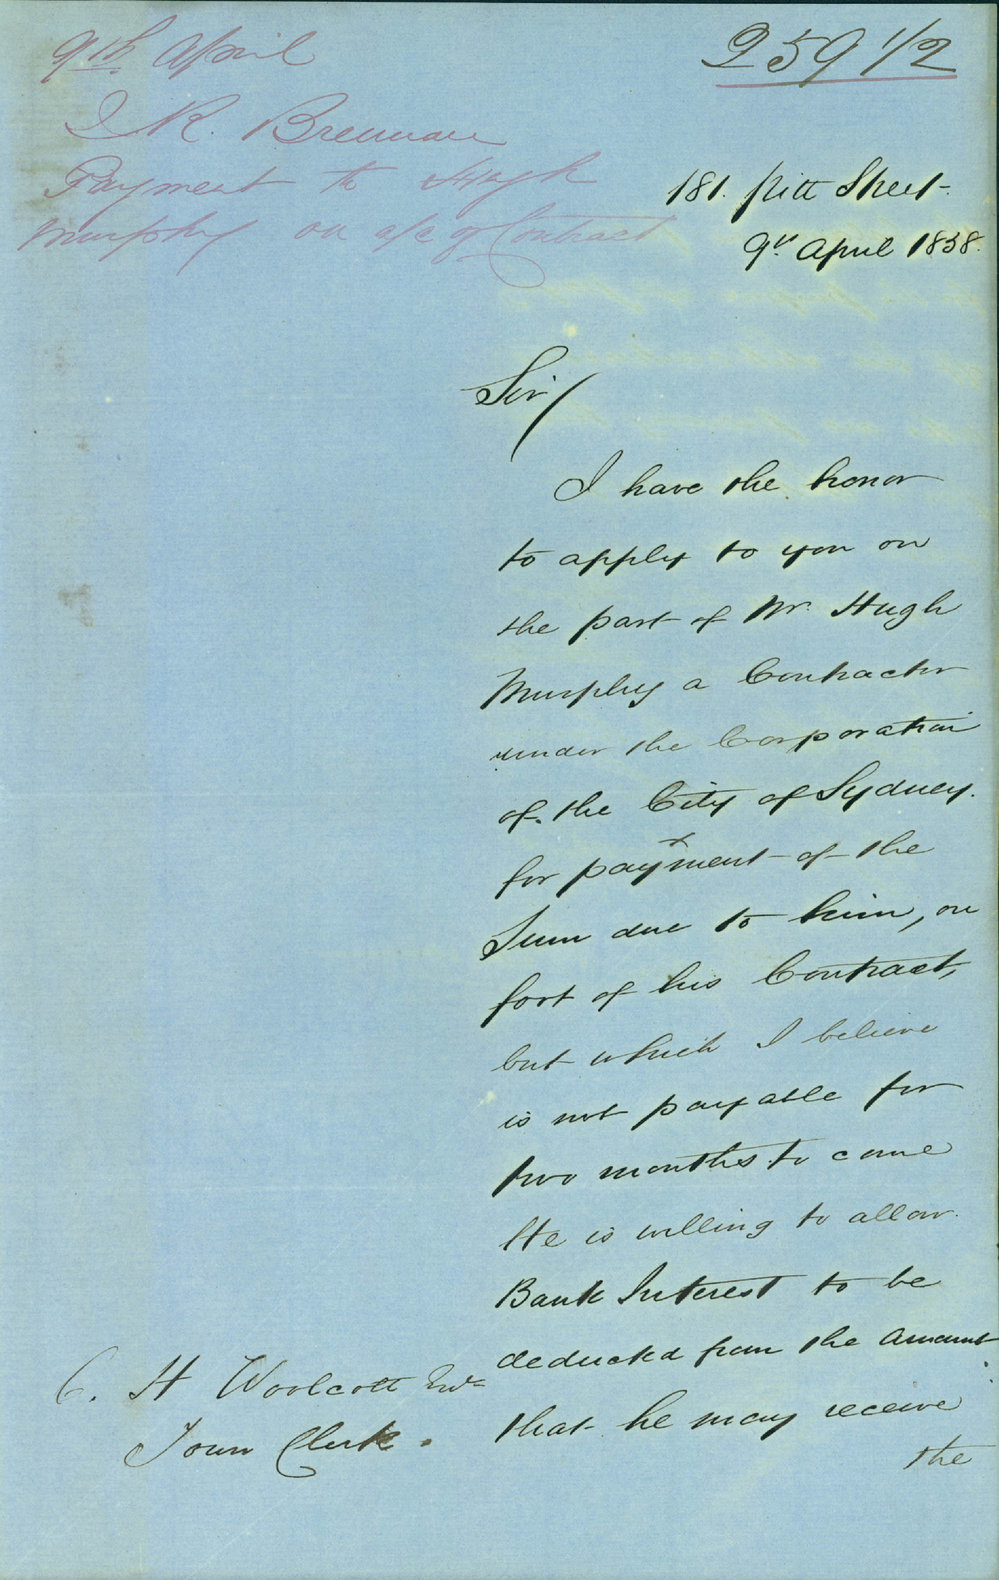 9th April
J R. Brennan
Payment to Hugh
Murphy on a/c of Contract
259 1/2
181. Pitt Street.
9th April 1858.
Sir/
I have the honor
to apply to you on
the part of Mr. Hugh
Murphy a Contractor
under the Corporation
of the City of Sydney.
for payment of the
Sum due to him, on
foot of his Contract,
but which I believe
is not payable for
two months to come
He is willing to allow
Bank Interest to be
deducted from the amount
that he may receive
the
C. H Woolcott Esqr
Town Clerk.